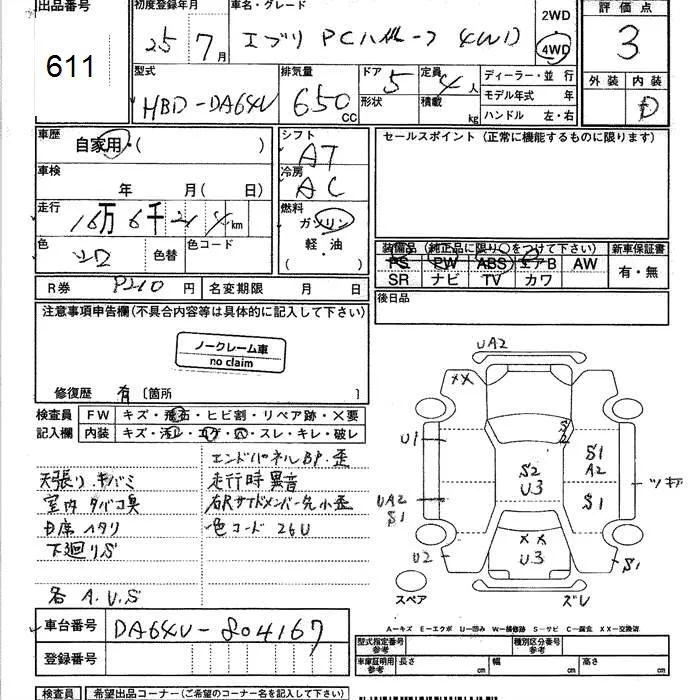 出品番号
611
初度登録年月
25 7月
車名・グレード
エブリ PCハイルーフ 4WD
2WD
4WD
評価点
3
外装 内装
D
型式
HBD-DA64V
排気量
650 CC
ドア 5
形状
定員 4人
積載 kg
ディーラー・並行
モデル年式 年
ハンドル 左・右
車歴
自家用・( )
車検
年 月( 日)
走行
16万6千 km
色
色替
色コード
シフト
AT
冷房
AC
燃料
ガソリン
軽・油
( )
セールスポイント (正常に機能するものに限ります)
装備品 (純正品に限り○をつけて下さい)
PS PW ABS エアB AW
SR ナビ TV カワ
新車保証書
有・無
R券 円
名変期限 月 日
後日品
注意事項申告欄(不具合内容等は具体的に記入して下さい)
ノークレーム車
no claim
修復歴 有 〔箇所 〕
検査員
記入欄
FW キズ・飛石・ヒビ割・リペア跡・X要
内装 キズ・汚レ・コゲ・穴・スレ・キレ・破レ
エンドパネルBP.歪
天張り.キバミ
走行時異音
室内タバコ臭
右Rサイドメンバー先小歪
日席ヘタリ
色コード 26U
下廻りS
各 A.U.S
UA2
XX
U1
S2
S2
U3
S1
A2
S1
ツキ
UA2
S1
U2
XX
U3
S1
スペア
ズレ
A…キズ E…エクボ U…凹み W…補修跡 S…サビ C…腐食 XX…交換済
車台番号
DA64V-804167
登録番号
型式指定番号
参考
種別区分番号
参考
車庫証明用
参考
長さ cm
幅 cm
高さ cm
検査員
希望出品コーナー(ご希望のコーナー名を記入して下さい)